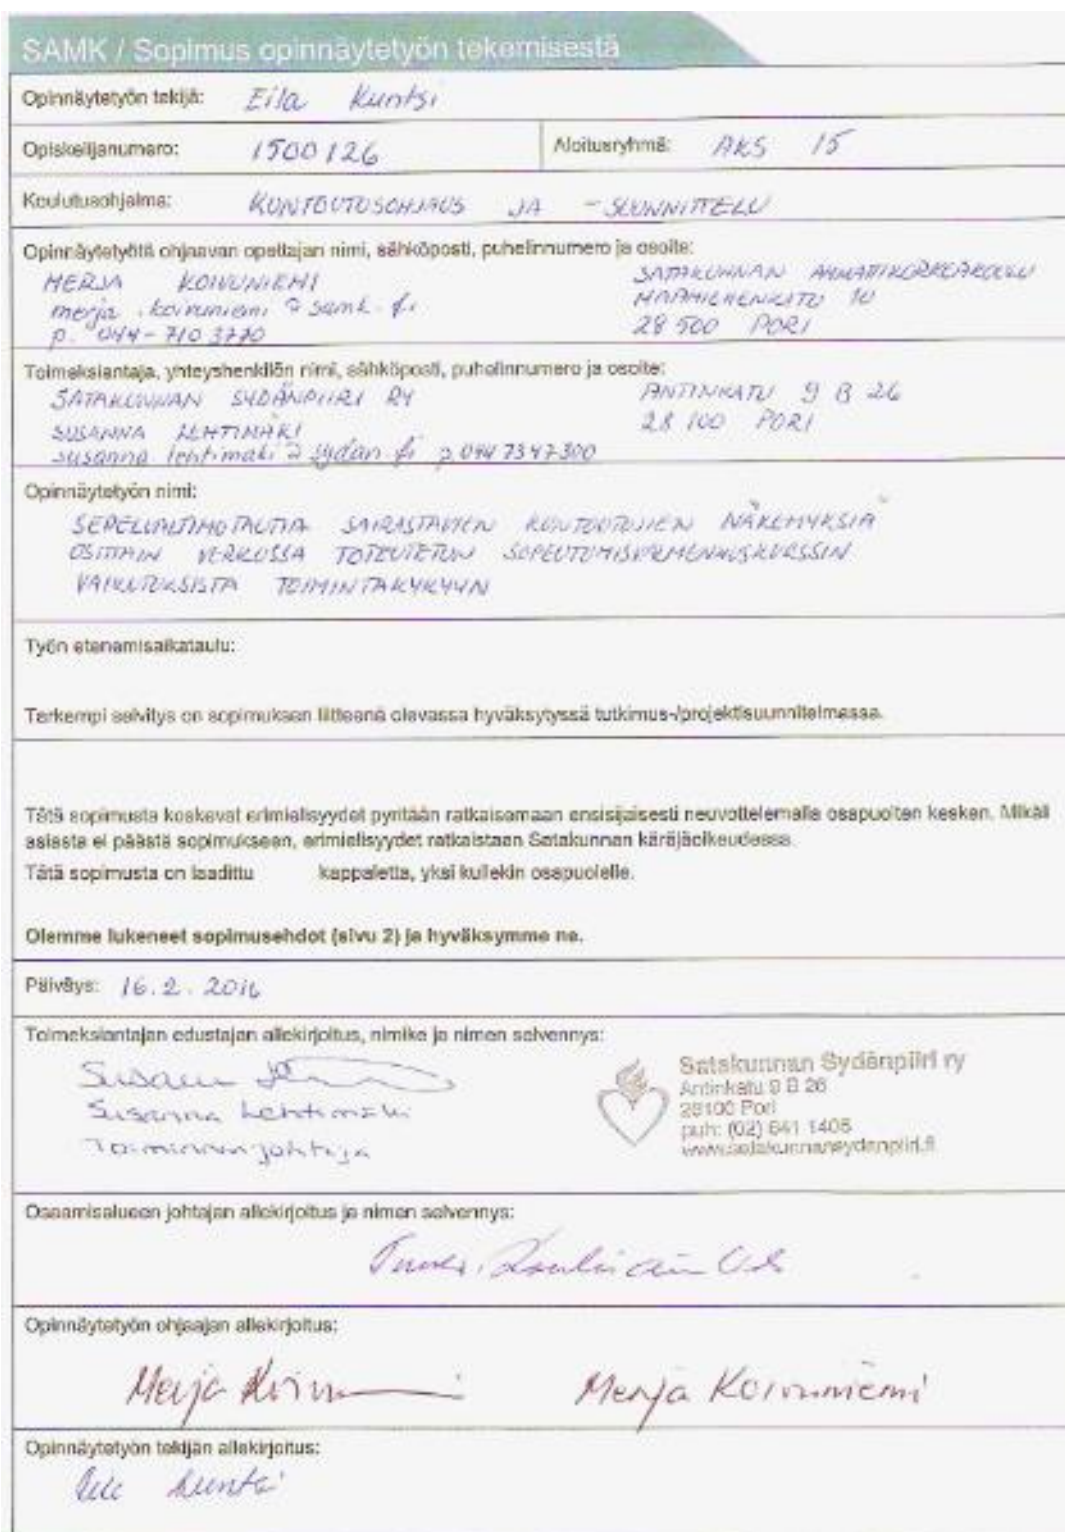 SAMK / Sopimus opinnäytetyön tekemisestä
Opinnäytetyön tekijä: Eila Kuntsi
Opiskelijanumero: 1500126 Aloitusryhmä: AKS 15
Koulutusohjelma: KUNTOUTUSOHJAUS JA -SUUNNITTELU
Opinnäytetyötä ohjaavan opettajan nimi, sähköposti, puhelinnumero ja osoite:
MERJA KOIVUNIEMI SATAKUNNAN AMMATTIKORKEAKOULU
merja.koivuniemi@samk.fi 10
p. 044-710 3770 28500 PORI
Toimeksiantaja, yhteyshenkilön nimi, sähköposti, puhelinnumero ja osoite:
SATAKUNNAN SYDÄNPIIRI RY ANTINKATU 9 B 26
28100 PORI
SUSANNA LEHTIMÄKI
susanna lehtimaki@sydan.fi p. 044 7347300
Opinnäytetyön nimi:
SEPELVALTIMOTAUTIA SAIRASTAVIEN KUNTOUTUJIEN NÄKEMYKSIÄ
OSITTAIN VERKOSSA TOTEUTETUN SOPEUTUMISVALMENNUSKURSSIN
VAIKUTUKSISTA TOIMINTAKYKYYN
Työn etenemisaikataulu:
Tarkempi selvitys on sopimuksen liitteenä olevassa hyväksytyssä tutkimus-/projektisuunnitelmassa.
Tätä sopimusta koskevat erimielisyydet pyritään ratkaisemaan ensisijaisesti neuvottelemalla osapuolten kesken. Mikäli
asiasta ei päästä sopimukseen, erimielisyydet ratkaistaan Satakunnan käräjäoikeudessa.
Tätä sopimusta on laadittu kappaletta, yksi kullekin osapuolelle.
Olemme lukeneet sopimusehdot (sivu 2) ja hyväksymme ne.
Päiväys: 16.2.2016
Toimeksiantajan edustajan allekirjoitus, nimike ja nimen selvennys:
Susanna Lehtimäki
Toiminnanjohtaja
Satakunnan Sydänpiiri ry
Antinkatu 9 B 26
28100 Pori
puh: (02) 641 1406
www.satakunnansydanpiiri.fi
Osaamisalueen johtajan allekirjoitus ja nimen selvennys:
Opinnäytetyön ohjaajan allekirjoitus:
Merja Koivuniemi
Opinnäytetyön tekijän allekirjoitus:
Kuntsi